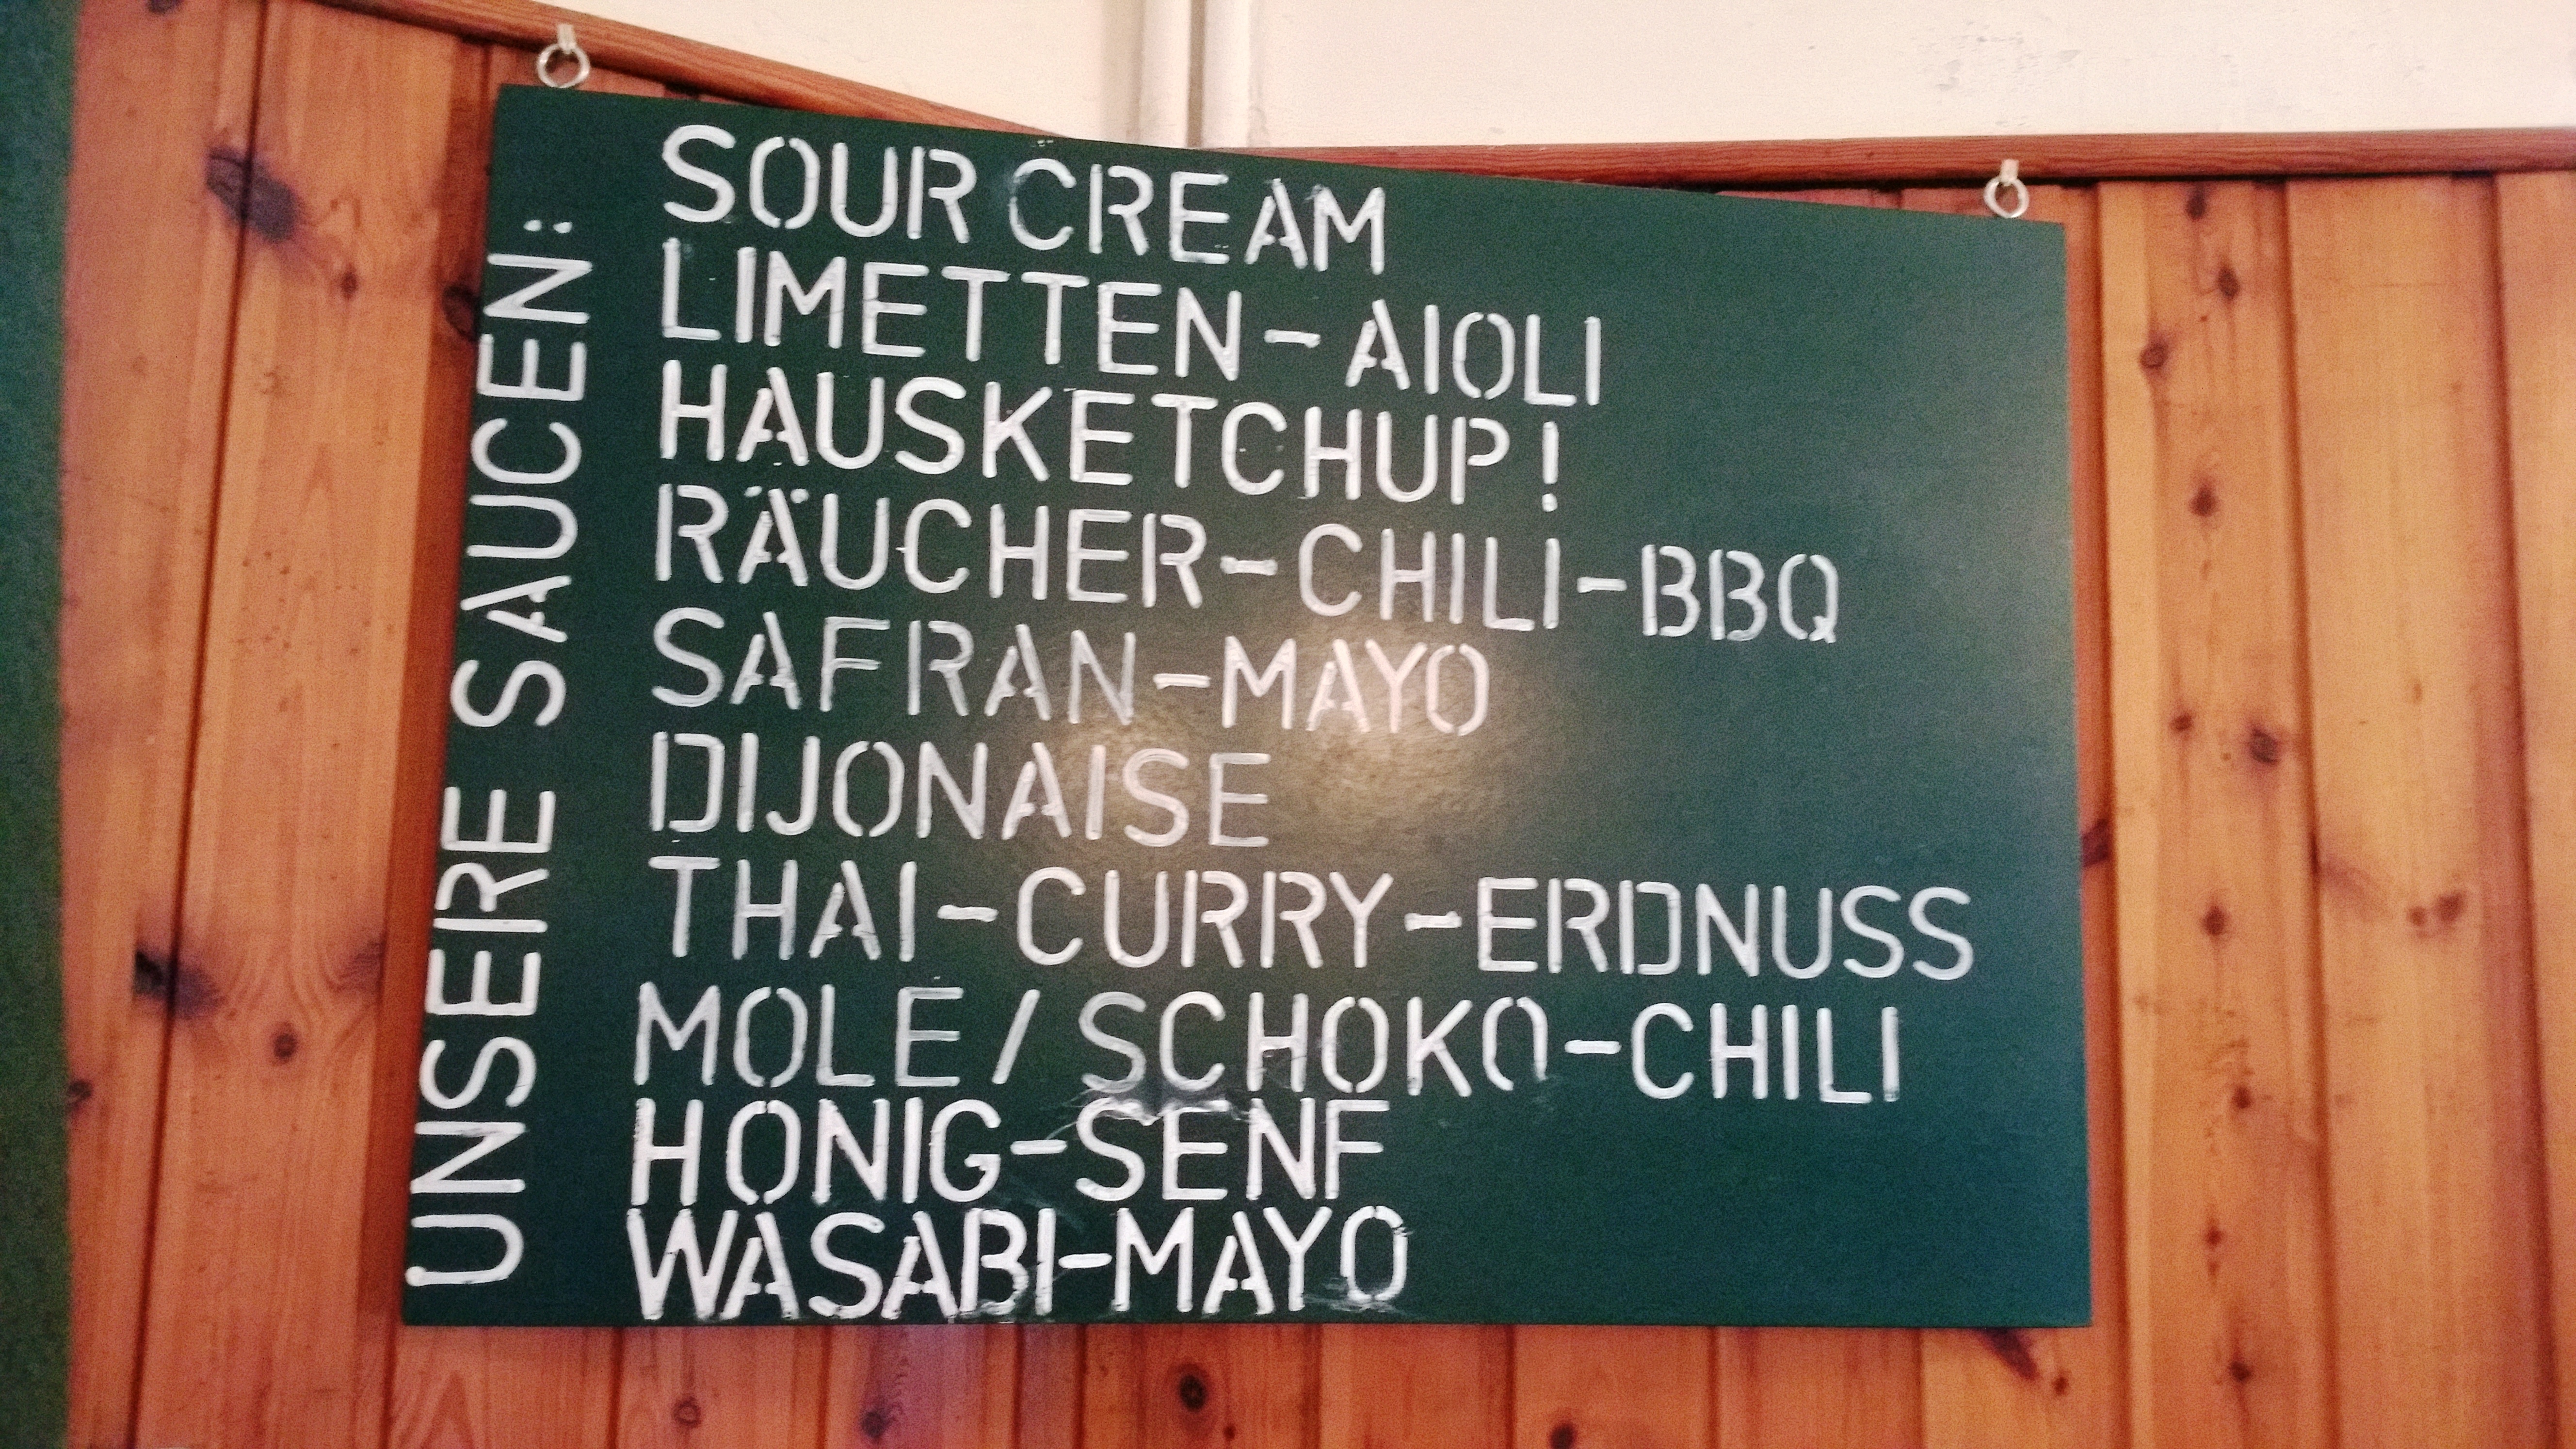 UNSERE SAUCEN:
SOUR CREAM
LIMETTEN-AIOLI
HAUSKETCHUP!
RÄUCHER-CHILI-BBQ
SAFRAN-MAYO
DIJONAISE
THAI-CURRY-ERDNUSS
MOLE/SCHOKO-CHILI
HONIG-SENF
WASABI-MAYO